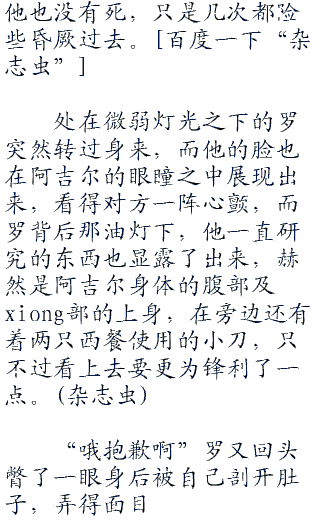 他也没有死，只是几次都险
些昏厥过去。[百度一下“杂
志虫”]
处在微弱灯光之下的罗
突然转过身来，而他的脸也
在阿吉尔的眼瞳之中展现出
来，看得对方一阵心颤，而
罗背后那油灯下，他一直研
究的东西也显露了出来，赫
然是阿吉尔身体的腹部及
xiong部的上身，在旁边还有
着两只西餐使用的小刀，只
不过看上去要更为锋利了一
点。(杂志虫)
“哦抱歉啊”罗又回头
瞥了一眼身后被自己剖开肚
子，弄得面目